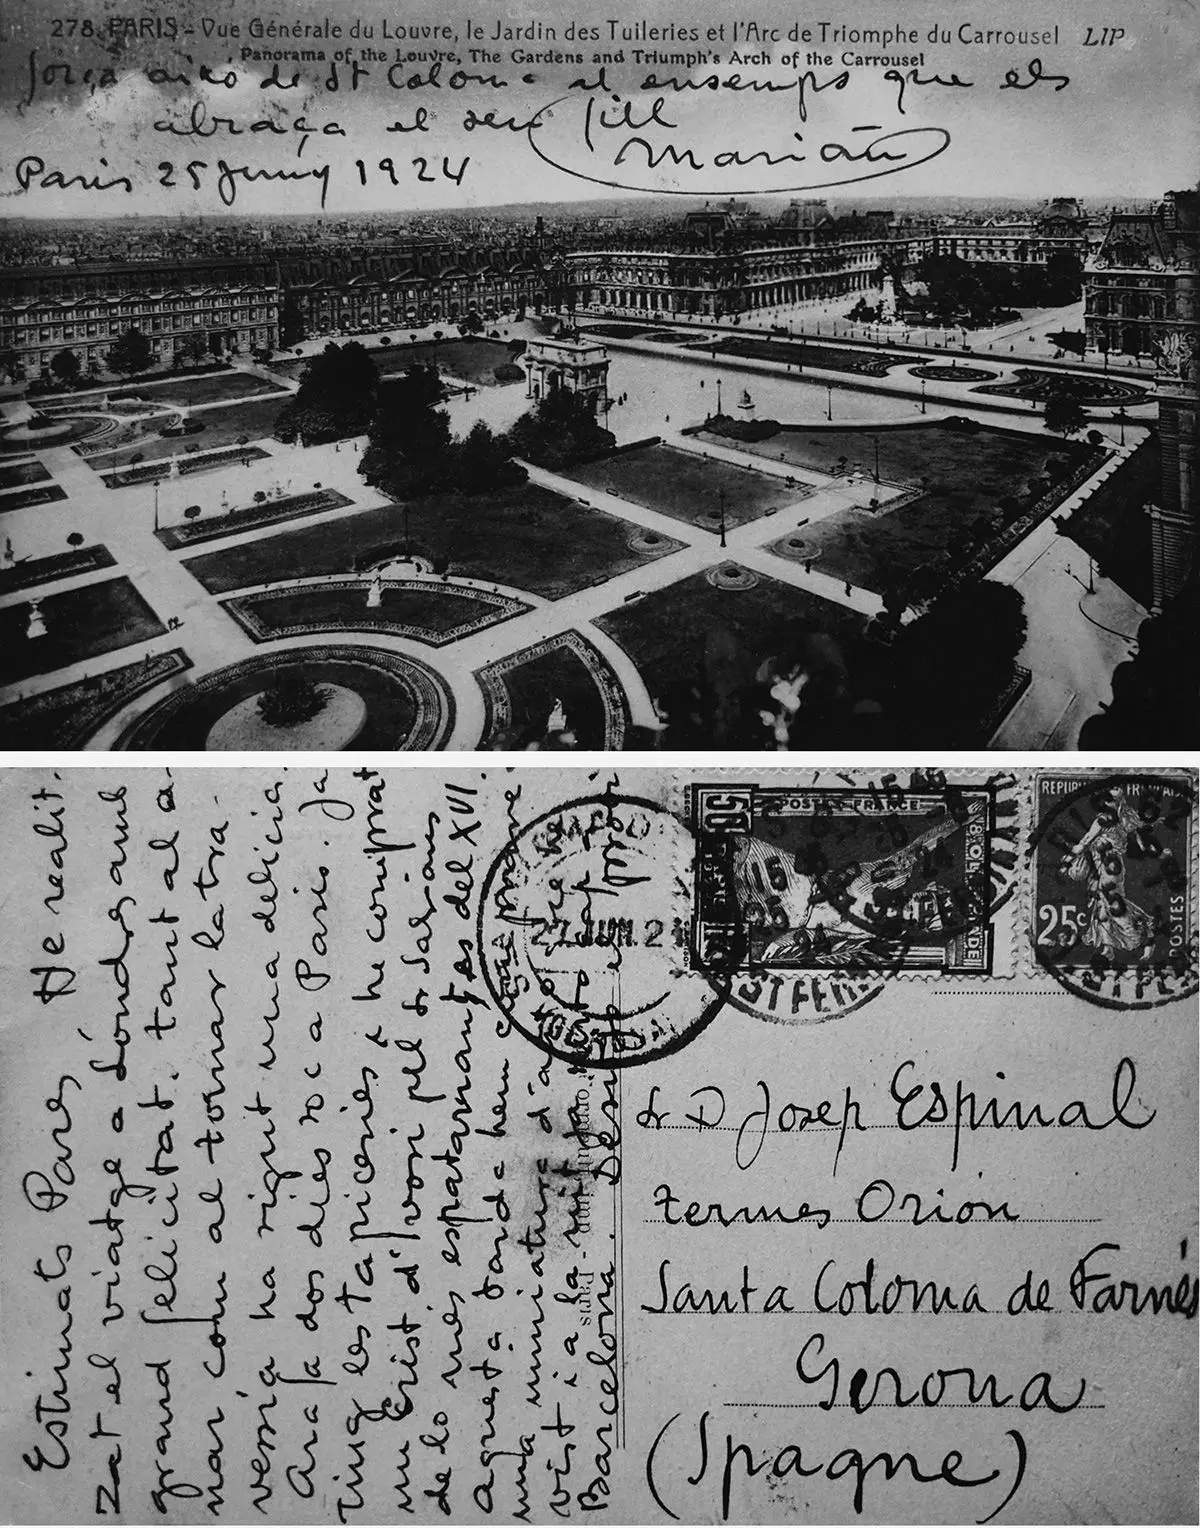 278. PARIS - Vue Générale du Louvre, le Jardin des Tuileries et l'Arc de Triomphe du Carrousel LIP
Panorama of the Louvre, The Gardens and Triumph's Arch of the Carrousel
força aire de St Coloma al ensemps que els
abraça el seu fill
Marián
Paris 25 Juny 1924
Estimats Pares He realit.
zat el viatge a Londres amb
grand felicitat. tant al a-
nar com al tornar la tra-
vessia ha sigut una delicia.
Ara fa dos dies soc a Paris. Ja
tinc les tapiceries i he comprat
un Crist d'Ivori pel Sr
de lo mes espatarnant, es del XVI.
aquesta tarda hem
una miniatura
vist i a la nit
Barcelona. Desitjo
POSTES FRANCE
25c
POSTES
27 JUIN. 2
Sr D Josep Espinal
termes Orión
Santa Coloma de Farnés
Gerona
(Spagne)